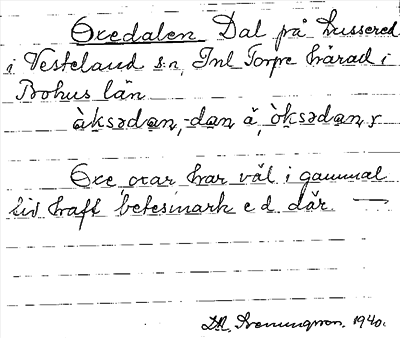 Oxedalen Dal på Hussered
i Vesteland s:n, Inl Torpe härad i
Bohus län
àksədaṇ, -daṇ ä, òksədaṇ,
Oxe, oxar har väl i gammal
tid haft betesmark e d där —
1940.